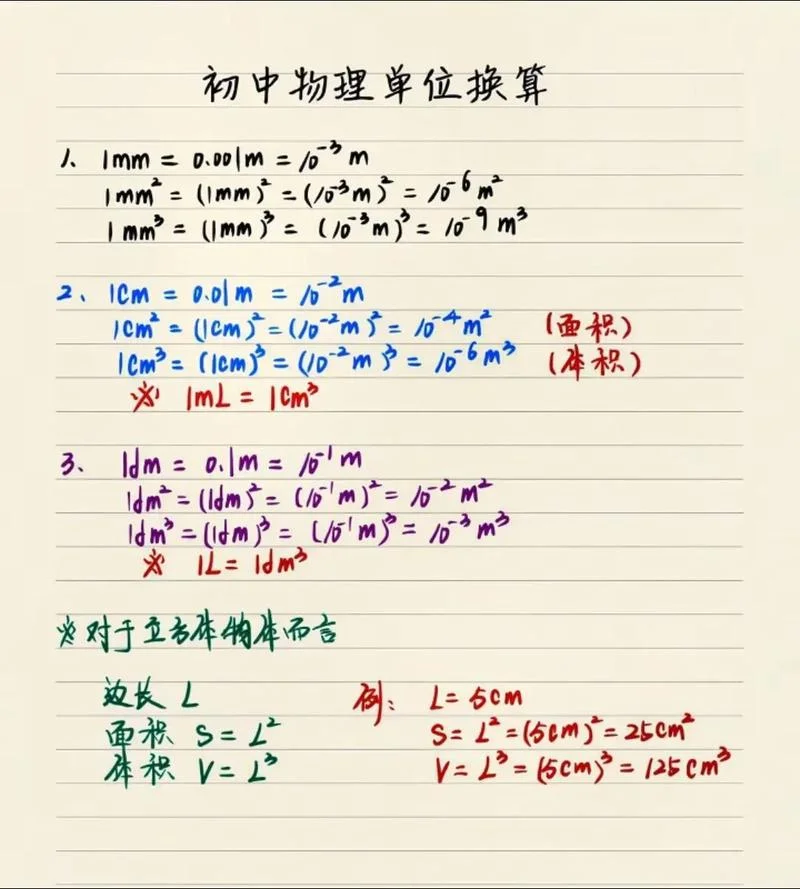 初中物理单位换算
1、 1mm = 0.001m = 10⁻³ m
1mm² = (1mm)² = (10⁻³m)² = 10⁻⁶ m²
1mm³ = (1mm)³ = (10⁻³m)³ = 10⁻⁹ m³
2、 1cm = 0.01m = 10⁻²m
1cm² = (1cm)² = (10⁻²m)² = 10⁻⁴m² (面积)
1cm³ = (1cm)³ = (10⁻²m)³ = 10⁻⁶m³ (体积)
※ 1mL = 1cm³
3、 1dm = 0.1m = 10⁻¹m
1dm² = (1dm)² = (10⁻¹m)² = 10⁻² m²
1dm³ = (1dm)³ = (10⁻¹m)³ = 10⁻³ m³
※ 1L = 1dm³
※对于立方体物体而言
边长 L 例: L = 5cm
面积 S = L² S = L² = (5cm)² = 25cm²
体积 V = L³ V = L³ = (5cm)³ = 125cm³